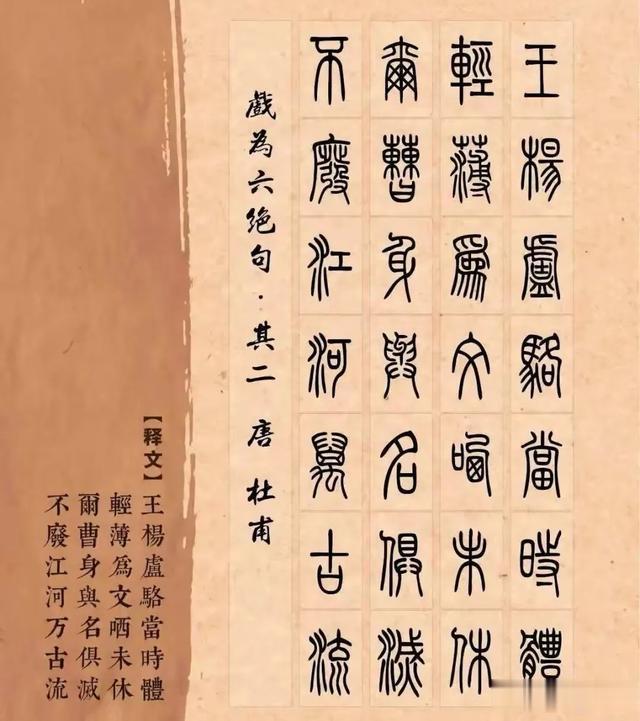 王楊盧駱當時體
輕薄爲文哂未休
爾曹身與名俱滅
不廢江河萬古流
戲為六绝句·其二 唐 杜甫
【释文】
王楊盧駱當時體
輕薄爲文哂未休
爾曹身與名俱滅
不廢江河万古流